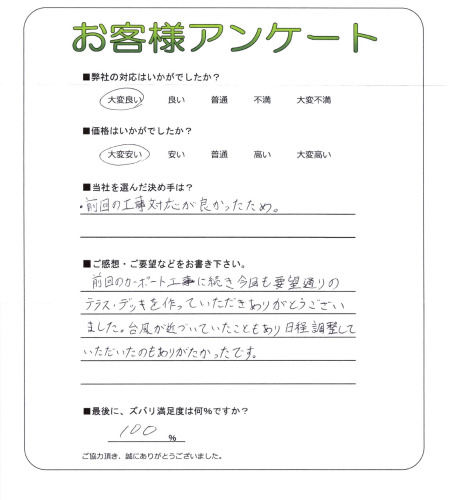 お客様アンケート
■弊社の対応はいかがでしたか？
大変良い 良い 普通 不満 大変不満
■価格はいかがでしたか？
大変安い 安い 普通 高い 大変高い
■当社を選んだ決め手は？
・前回の工事対応が良かったため。
■ご感想・ご要望などをお書き下さい。
前回のカーポート工事に続き今回も要望通りの
テラス・デッキを作っていただきありがとうござい
ました。台風が近づいていたこともあり日程調整して
いただいたのもありがたかったです。
■最後に、ズバリ満足度は何%ですか？
100 %
ご協力頂き、誠にありがとうございました。